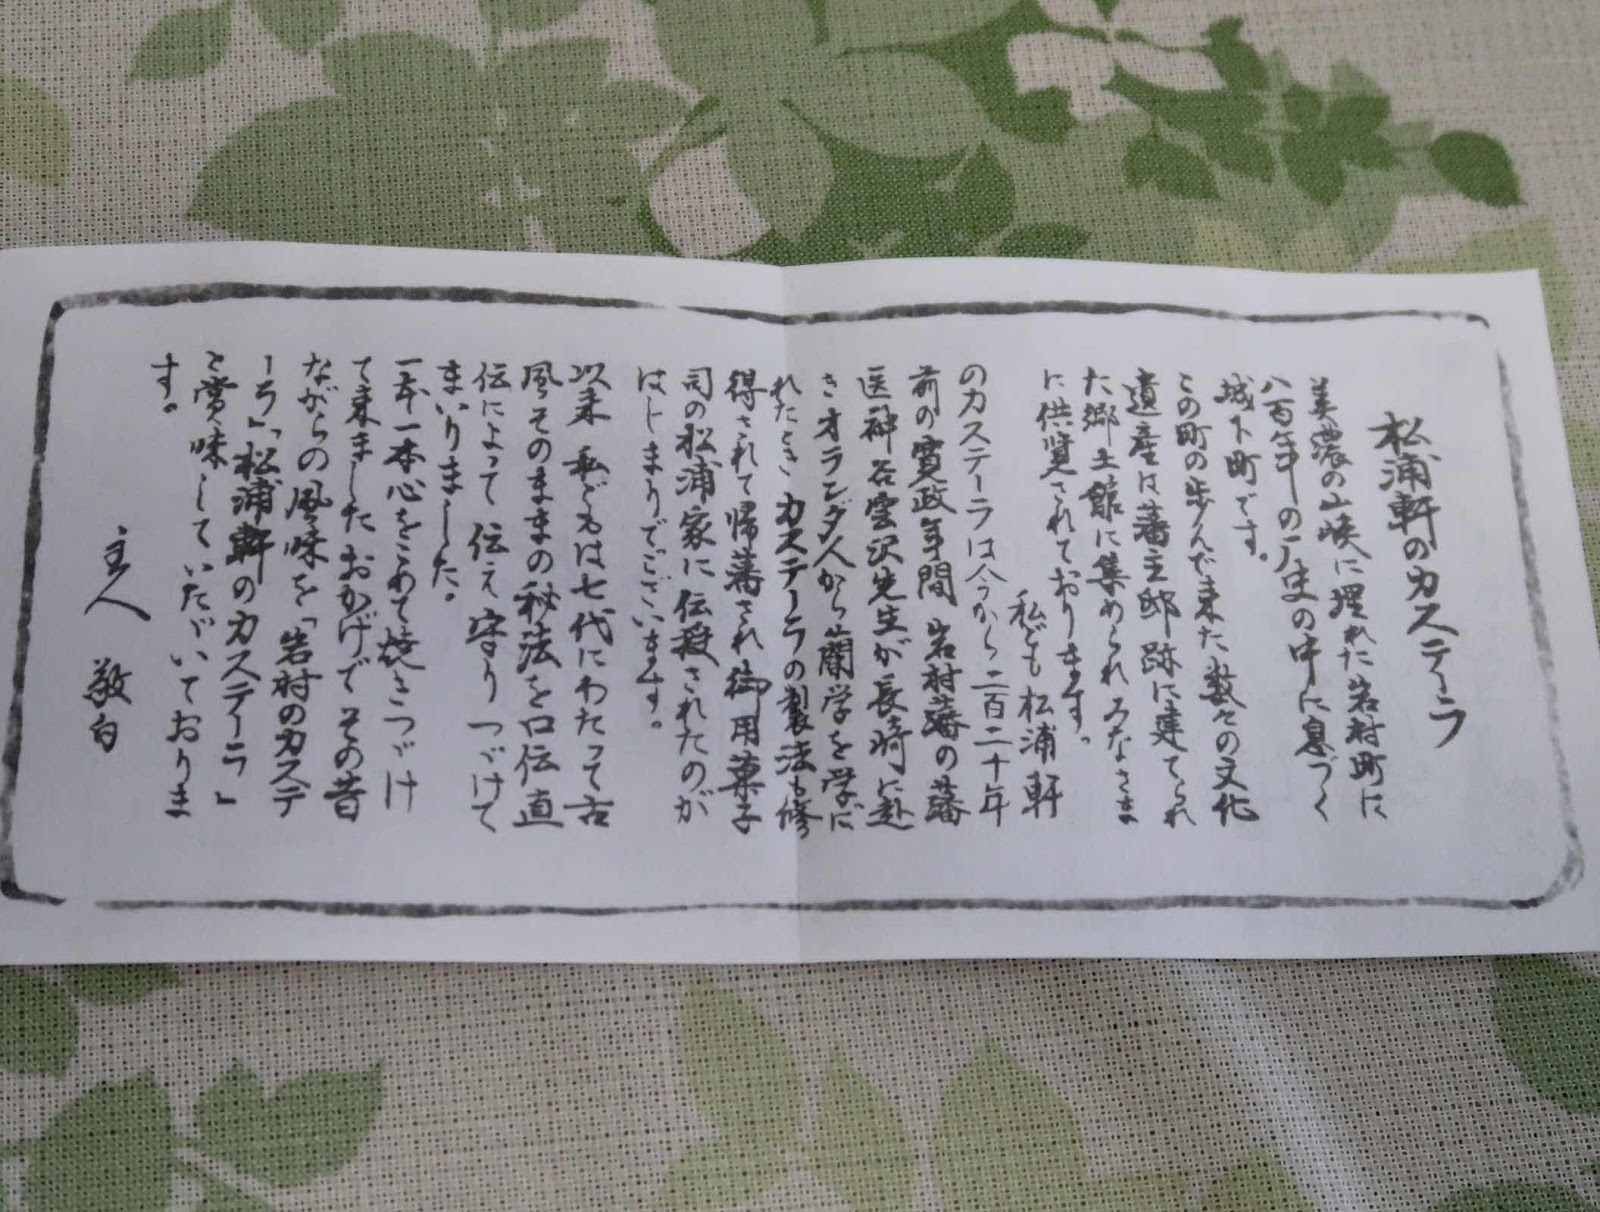 松浦軒のカステーラ
美濃の山峡に埋れた岩村町に
八百年の歴史の中に息づく
城下町です。
この町の歩んで来た数々の文化
遺産は藩主邸跡に建てられ
た郷土館に集められみなさま
に供覧されております。
私ども松浦軒
のカステーラは今から二百二十年
前の寛政年間 岩村藩の藩
医神谷雲沢先生が長崎に赴
きオランダ人から蘭学を学ば
れたとき カステーラの製法も修
得されて帰藩され御用菓子
司の松浦家に伝授されたのが
はじまりでございます。
以来 私どもは七代にわたって古
風そのままの秘法を口伝直
伝によって 伝え守りつづけて
まいりました。
一本一本心をこめて焼きつづけ
て来ました おかげでその昔
ながらの風味を「岩村のカステ
ーラ」「松浦軒のカステーラ」
と賞味していただいておりま
す。
主人 敬白